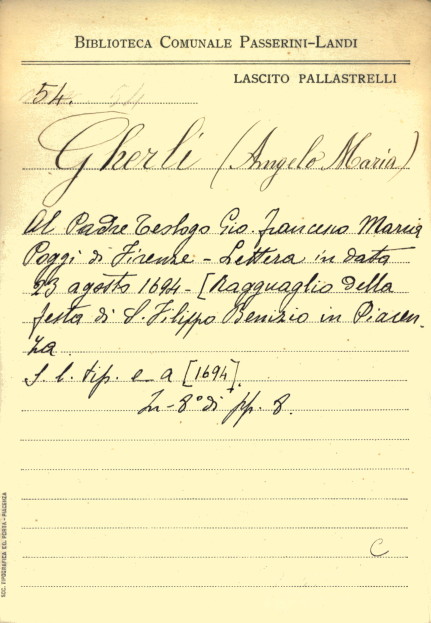 BIBLIOTECA COMUNALE PASSERINI-LANDI
LASCITO PALLASTRELLI
54.
Gherli (Angelo Maria)
Al Padre Teologo Gio. francesco Maria
Poggi di Firenze - Lettera in data
23 agosto 1694 - [Ragguaglio della
festa di S. Filippo Benizio in Piacen-
za
S. l. tip. e a [1694].
In-8° di pp. 8.
C
SOC. TIPOGRAFICA DEL PORTA - PIACENZA